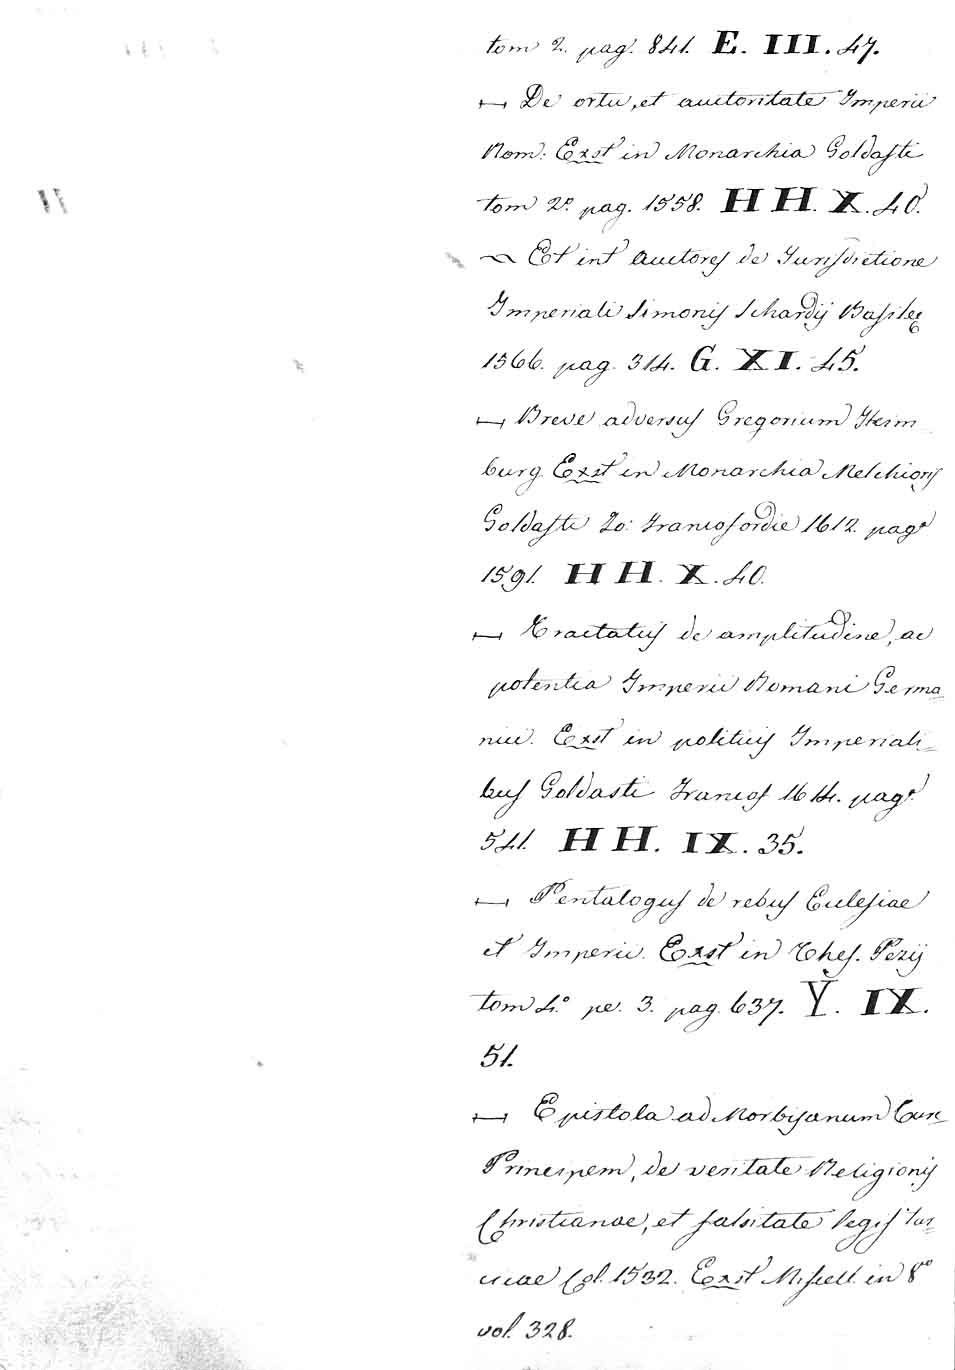 tom 2. pag. 841. E. III. 47.
De ortu, et auctoritate Imperii
Rom: Exst in Monarchia Goldasti
tom 2º pag. 1558. H H. X. 40.
Et int auctores de Jurisdictione
Imperiali Simonis Schardij Basileę
1566. pag. 314. G. XI. 45.
Breve adversus Gregorium Heim=
burg Exst in Monarchia Melchioris
Goldasti Francofordie 1612. pag.
1591. H H. X. 40.
Tractatus de amplitudine, ac
potentia Imperii Romani Germa=
nici. Exst in politicis Imperiali=
bus Goldasti Francof 1614. pag.
541. H H. IX. 35.
Pentalogus de rebus Eclesiae
et Imperii. Exst in Thes. Pezij
tom 4.º pe. 3. pag. 637. Y. IX.
51.
Epistola ad Morbisanum Turc=
Principem, de veritate Religionis
Christianae, et falsitate legis Tur=
cicae Col. 1532. Exst Miscell. in 8º
vol. 328.